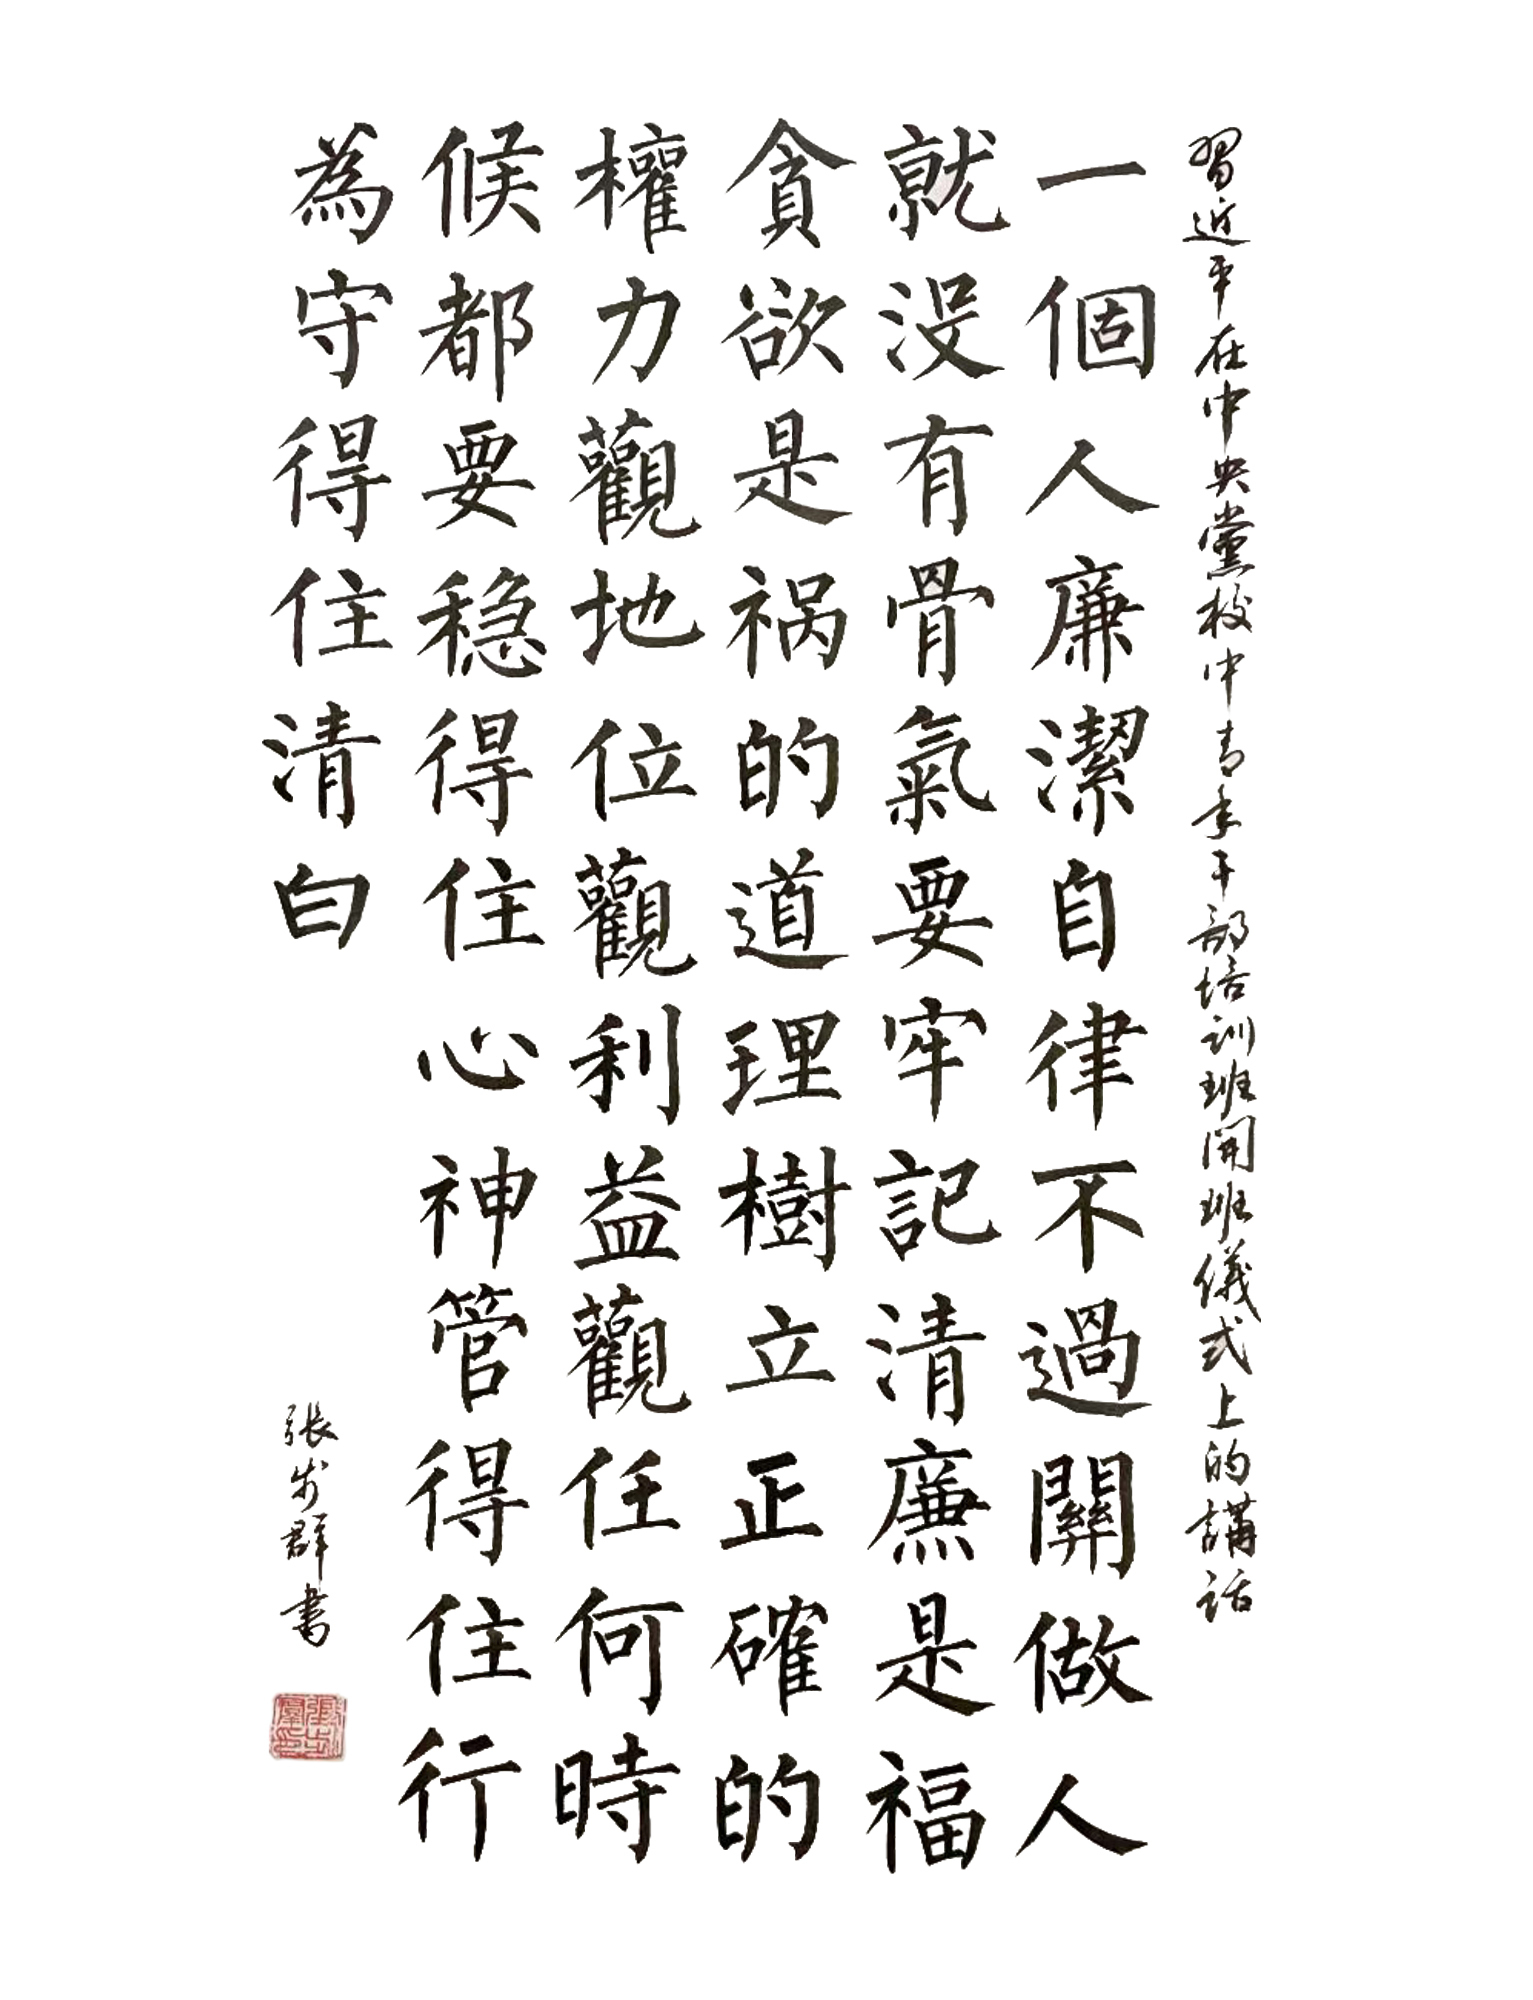 習近平在中央黨校中青年干部培训班開班儀式上的講话
一個人廉潔自律不過關做人
就没有骨氣要牢記清廉是福
貪欲是祸的道理樹立正確的
權力觀地位觀利益觀任何時
候都要稳得住心神管得住行
為守得住清白
張步群书